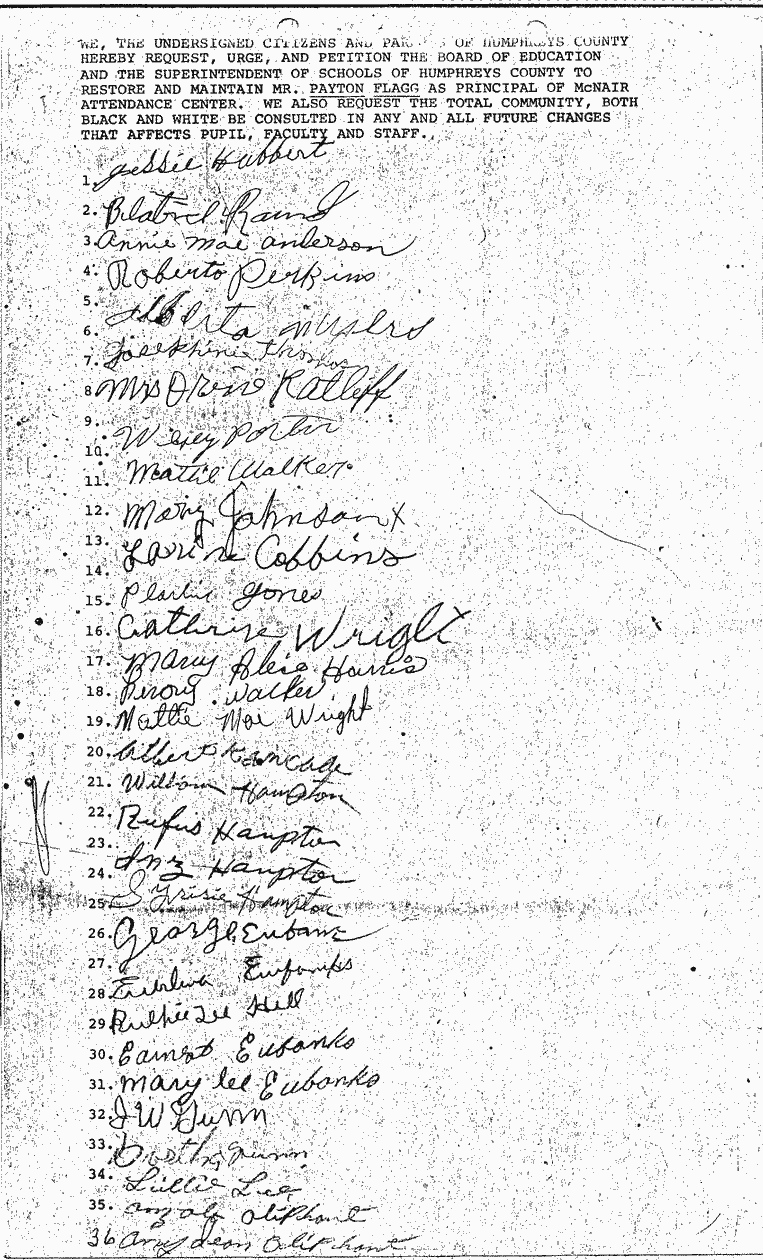 WE, THE UNDERSIGNED CITIZENS AND OF HUMPHREYS COUNTY
HEREBY REQUEST, URGE, AND PETITION THE BOARD OF EDUCATION
AND THE SUPERINTENDENT OF SCHOOLS OF HUMPHREYS COUNTY TO
RESTORE AND MAINTAIN MR. PAYTON FLAGG AS PRINCIPAL OF McNAIR
ATTENDANCE CENTER. WE ALSO REQUEST THE TOTAL COMMUNITY, BOTH
BLACK AND WHITE BE CONSULTED IN ANY AND ALL FUTURE CHANGES
THAT AFFECTS PUPIL, FACULTY AND STAFF.
1. Jessie Hubbert
2.
3. Annie Mae Anderson
4. Roberto Perkins
5.
6. Alberta Myers
7. Josephine Thomas
8. Mrs Ratleff
9.
10. Porter
11. Mattie Walker
12. Mary Johnson X
13.
14. Larine Cobbins
15. Jones
16. Cathrine Wright
17. Mary Alice Harris
18. Walker
19. Mattie Mae Wright
20. Albert
21. William Hampton
22. Rufus Hampton
23.
24. Hampton
25. Hampton
26. George Eubank
27.
28. Eubanks
29. Lee Hill
30. Earnest Eubanks
31. Mary Lee Eubanks
32. J W Gunn
33. Gunn
34. Lillie Lee
35. Oliphant
36 Oliphant